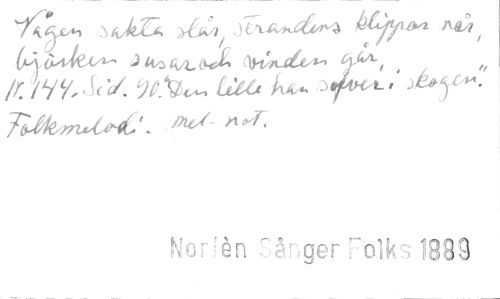 Vågen sakta slår, strandens klippor når,
björken susar och vinden går,
N. 144. Sid. 90. "Den lille han sofver i skogen".
Folkmelodi. mel-not.
Norlèn Sånger Folks 1889